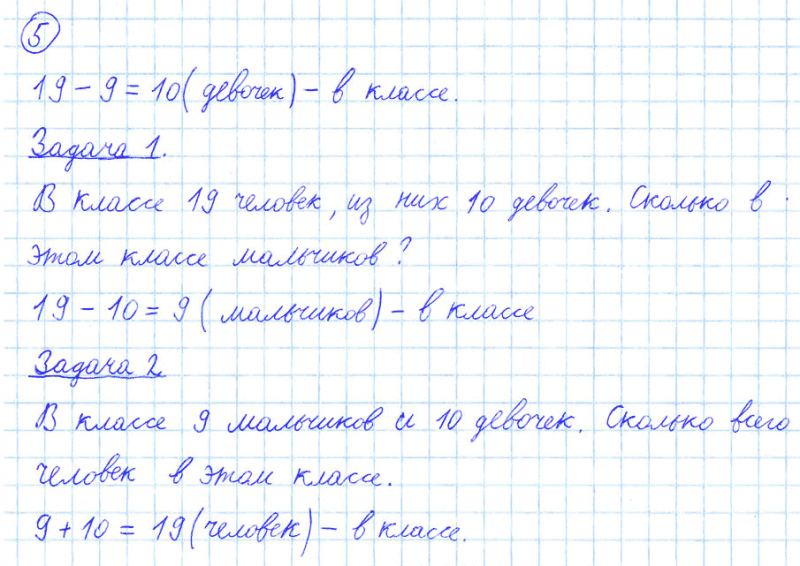 5
19 - 9 = 10 (девочек) - в классе.
Задача 1.
В классе 19 человек, из них 10 девочек. Сколько в
этом классе мальчиков?
19 - 10 = 9 (мальчиков) - в классе
Задача 2
В классе 9 мальчиков и 10 девочек. Сколько всего
человек в этом классе.
9 + 10 = 19 (человек) - в классе.